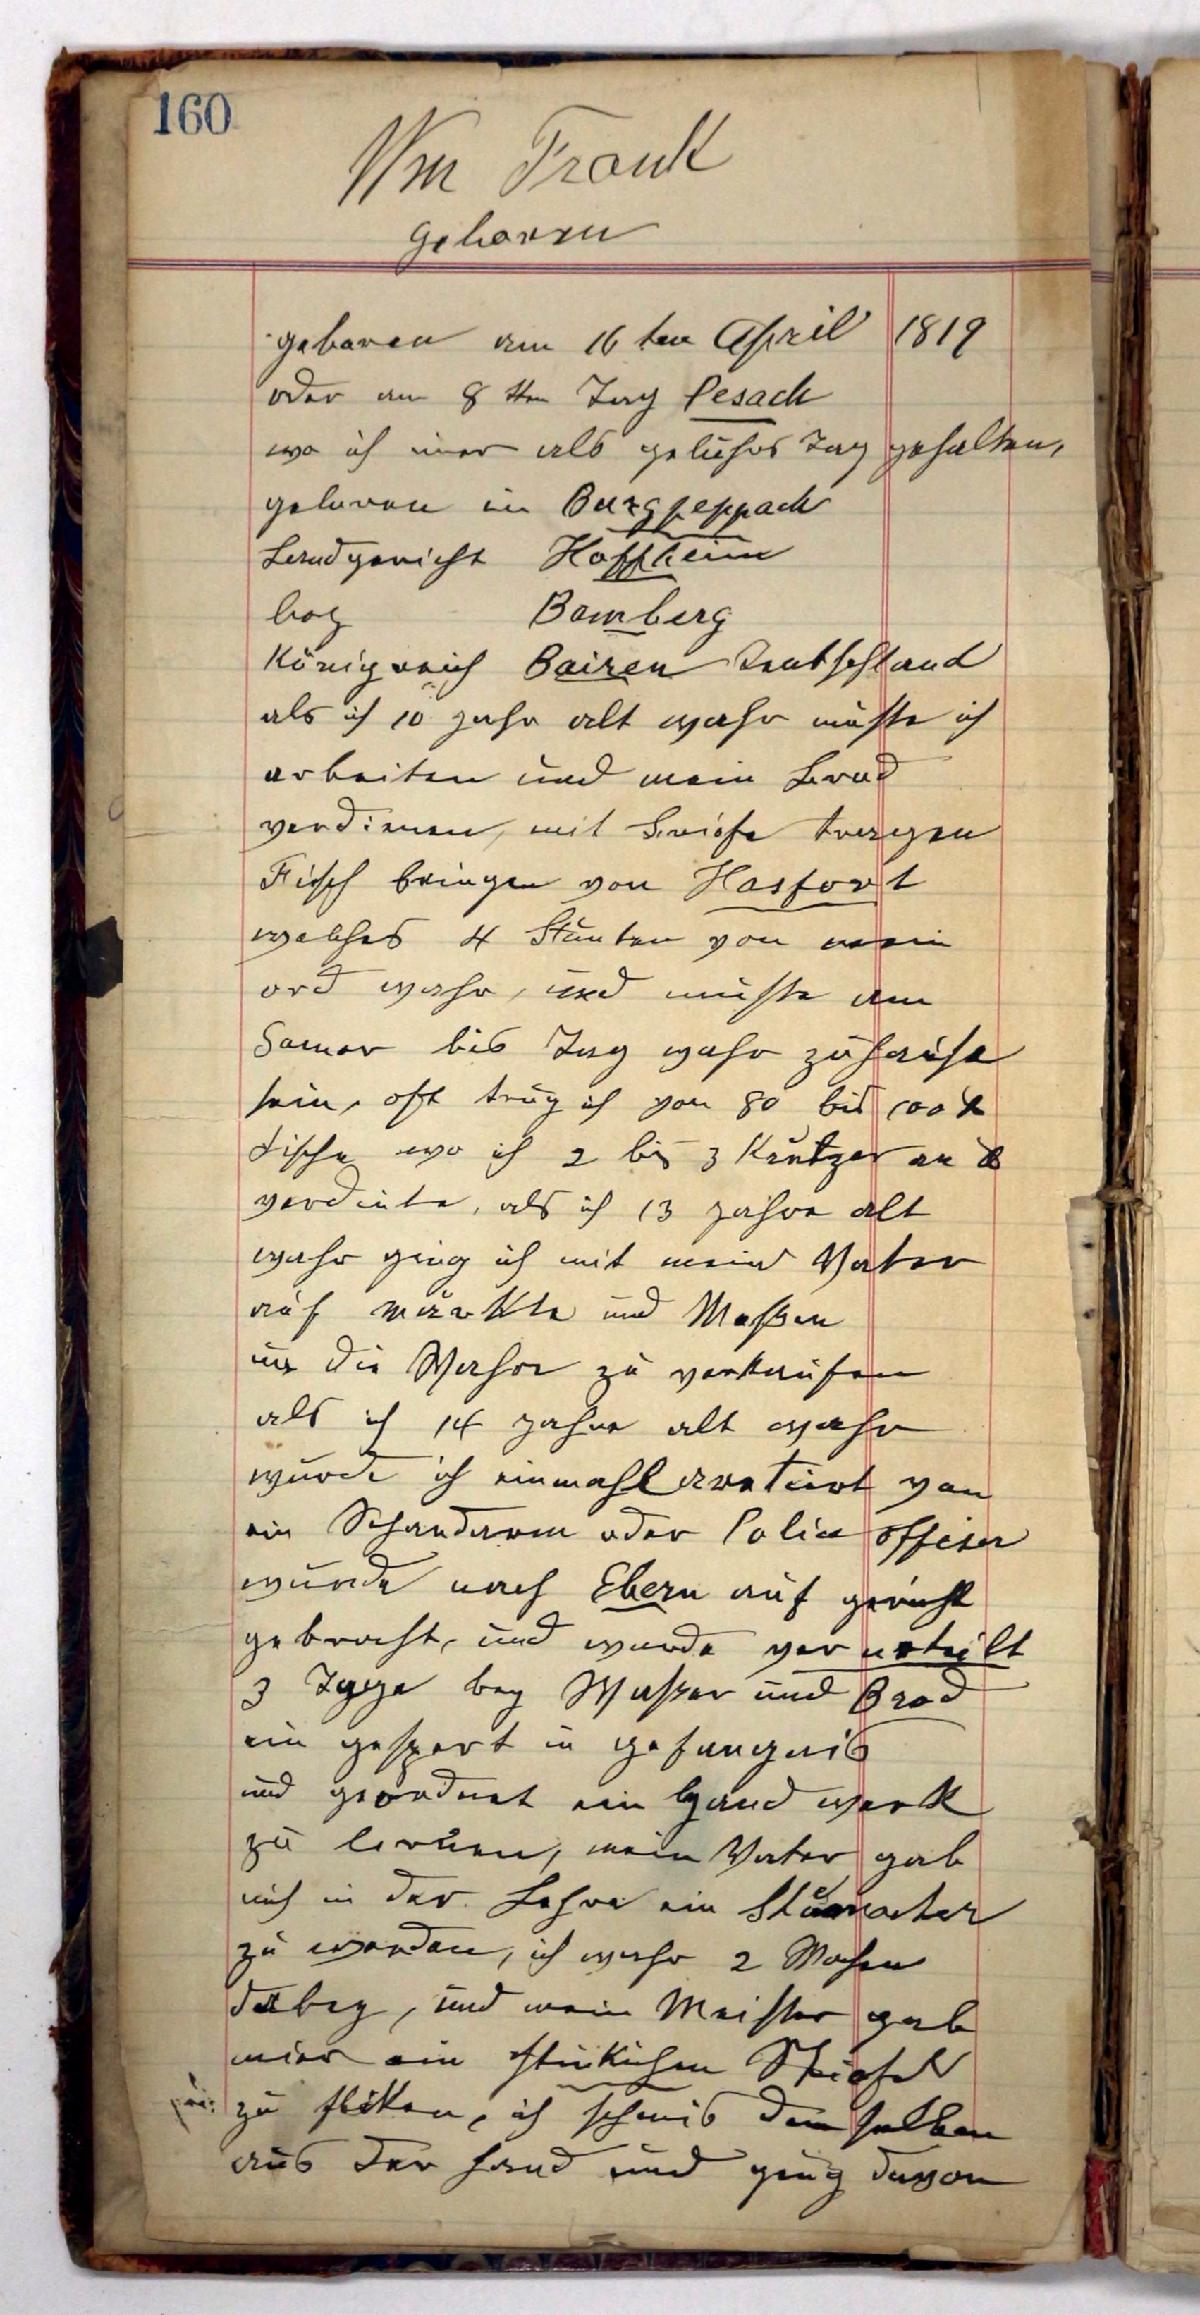 160
Wm Frank
geboren
geboren am 16 ten April 1819
oder am 8 ten Tag Pesach
wo ich imer als Tag gehalten,
geboren in Burgpeppach
Landgericht Hoffheim
boz Bamberg
Königreich Bairen Deutschland
als ich 10 jahr alt wahr muste ich
arbeiten und mein Brod
verdienen, mit Briefe tragen
Fisch bringen von Hasfort
welches 4 Stunten von mein
ord wahr, und muste am
Samer bis Tag wahr zuhause
sein, oft trug ich von 80 bis 100 ℔
Fische wo ich 2 bis 3 Kreutzer an ℔
verdinte, als ich 13 jahre alt
wahr ging ich mit mein Vater
auf märkte und Messen
um die Wahre zu verkaufen
als ich 14 jahre alt wahr
wurde ich einmahl aretiert von
ein Schandarm oder Police officer
wurde nach Ebern auf gericht
gebracht, und wurde verurteilt
3 Tage bey Wasser und Brod
ein gespert in gefangnis
und geordnet ein Handwerk
zu lernen, mein Vater gab
mich in der Lehre ein Shumacher
zu werden, ich wahr 2 Wochen
dabey, und mein Meister gab
mier ein stinkichen Stiefel
zu fliken, ich schmis den selben
aus der hand und ging davon